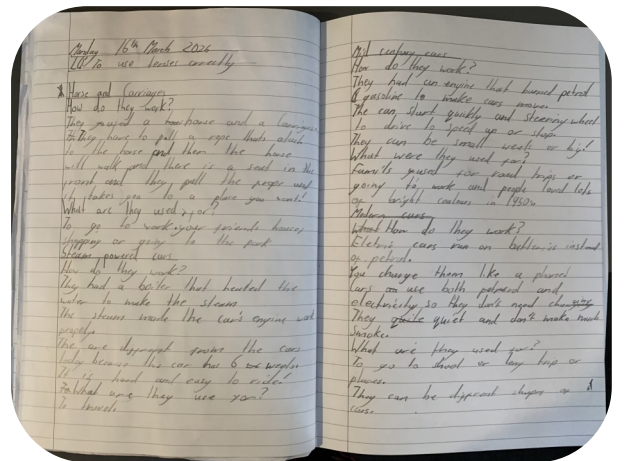 Monday 16th March 2026
LQ To use tenses correctly
Horse and Carriages
How do they work?
They used a house and a carriages
They have to pull a rope thats attach
to the horse and them the house
will walk and there is a seat in the
front and they pull the peper and
it takes you to a place you want!
What are they used for?
To go to work, your friends houses
shopping or going to the park
Steam powered cars
How do they work?
They had a boiler that heated the
water to make the steam
The steam made the car's engine work
The are different frome the cars
today because this car has 6
It is hard and easy to ride!
What are they use for?
To travel.
Mid century cars
How do they work?
They had an engine that burned petrol
gasoline to make cars move
The can start quickly and steering wheel
to drive to speed up or stop
They can be small, weak or big!
What were they used for?
used for road trips or
going to work and people loved lots
of bright colours in 1950s
Modern cars
How do they work?
Eletric cars run on instead
of petrol.
You charge them like a phone!
Cars use both and
electricity so they don't need
They quiet and don't make much
Smoke.
What are they used for?
To go to or trip or
places.
They can be different shapes or
cars.